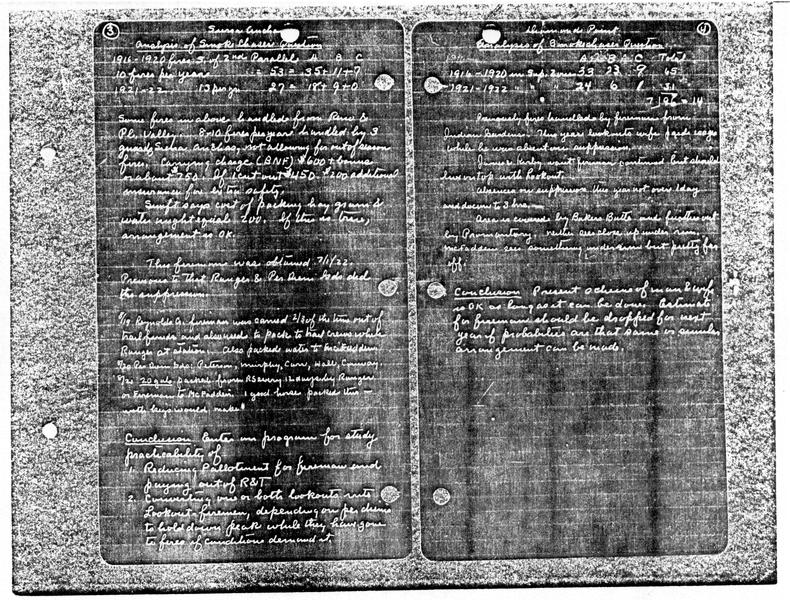 3
Sierra Ancha
Analysis of Smokechaser Question
1916-1920 fires S. of 2nd Parallel A B C
10 fires per year = 53 = 35 + 11 + 7
1921-22 13 per yr 27 = 18 + 9 + 0
Some fires in above handled from Reno &
Pl. Valley. 8-10 fires per year handled by 3
guards Sierra Anchas, not allowing for out of season
fires. Carrying charge (BNF) $600 + bonus
or about $750. If 1 cut out $450. $200 additional
insurance for extra safety.
Swift says cost of packing hay grain &
water might equal 200. If this is true,
arrangement is OK.
This fireman was obtained 7/1/22.
Previous to that Ranger & Per Diem Gds. did
the suppression.
8/19 Reynolds Cr. fireman was carried 2/3 of the time out of
trail funds and also used to pack to trail crews while
Ranger at station. Also packed water to McFadden.
8/20 Per Diem Gds: Peterson, Murphy, Curr, Wall, Conway.
8/21 20 gals packed from RS every 12 days by Ranger
or Fireman to McFadden. 1 good horse packed this —
with kegs would make
Conclusion Enter on program for study
practicability of
1. Reducing P allotment for fireman and
paying out of R&T
2. Converting one or both lookouts into
Lookout-firemen, depending on per diems
to hold down peak while they have gone
to fires if conditions demand it.
4
Diamond Point
Analysis of Smokechaser Question
A B C Total
1916-1920 in Sup. Zone 33 23 9 65
1921-1922 " " 24 6 1 31
7 | 96 = 14
Previously fires handled by fireman from
Indian Gardens. This year lookout's wife paid wages
while he was absent on suppression.
James Kirby want fireman continued but should
live on top with lookout.
Absences on suppression this year not over 1 day
and down to 3 hrs.
Area is covered by Bakers Butte and further out
by Promontory neither sees close up under rim,
McFadden sees something under rim but pretty far
off.
Conclusion Present scheme of man & wife
is OK as long as it can be done. Estimate
for fireman should be dropped for next
year if probabilities are that same or similar
arrangement can be made.